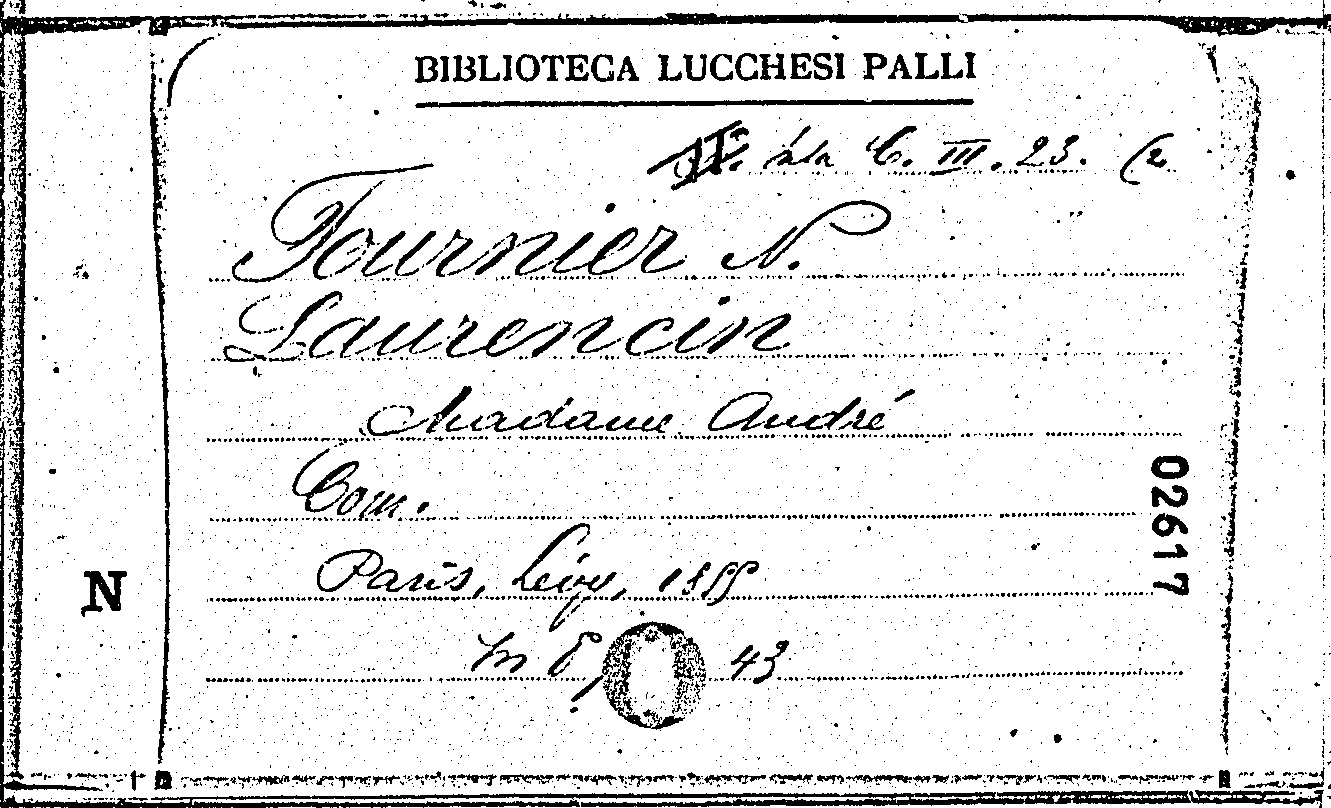 BIBLIOTECA LUCCHESI PALLI
Sala C. III. 23. (2
Fournier N.
Laurencin
Madame André
Com.
Paris, Lévy,
In 8, 43
02617
N